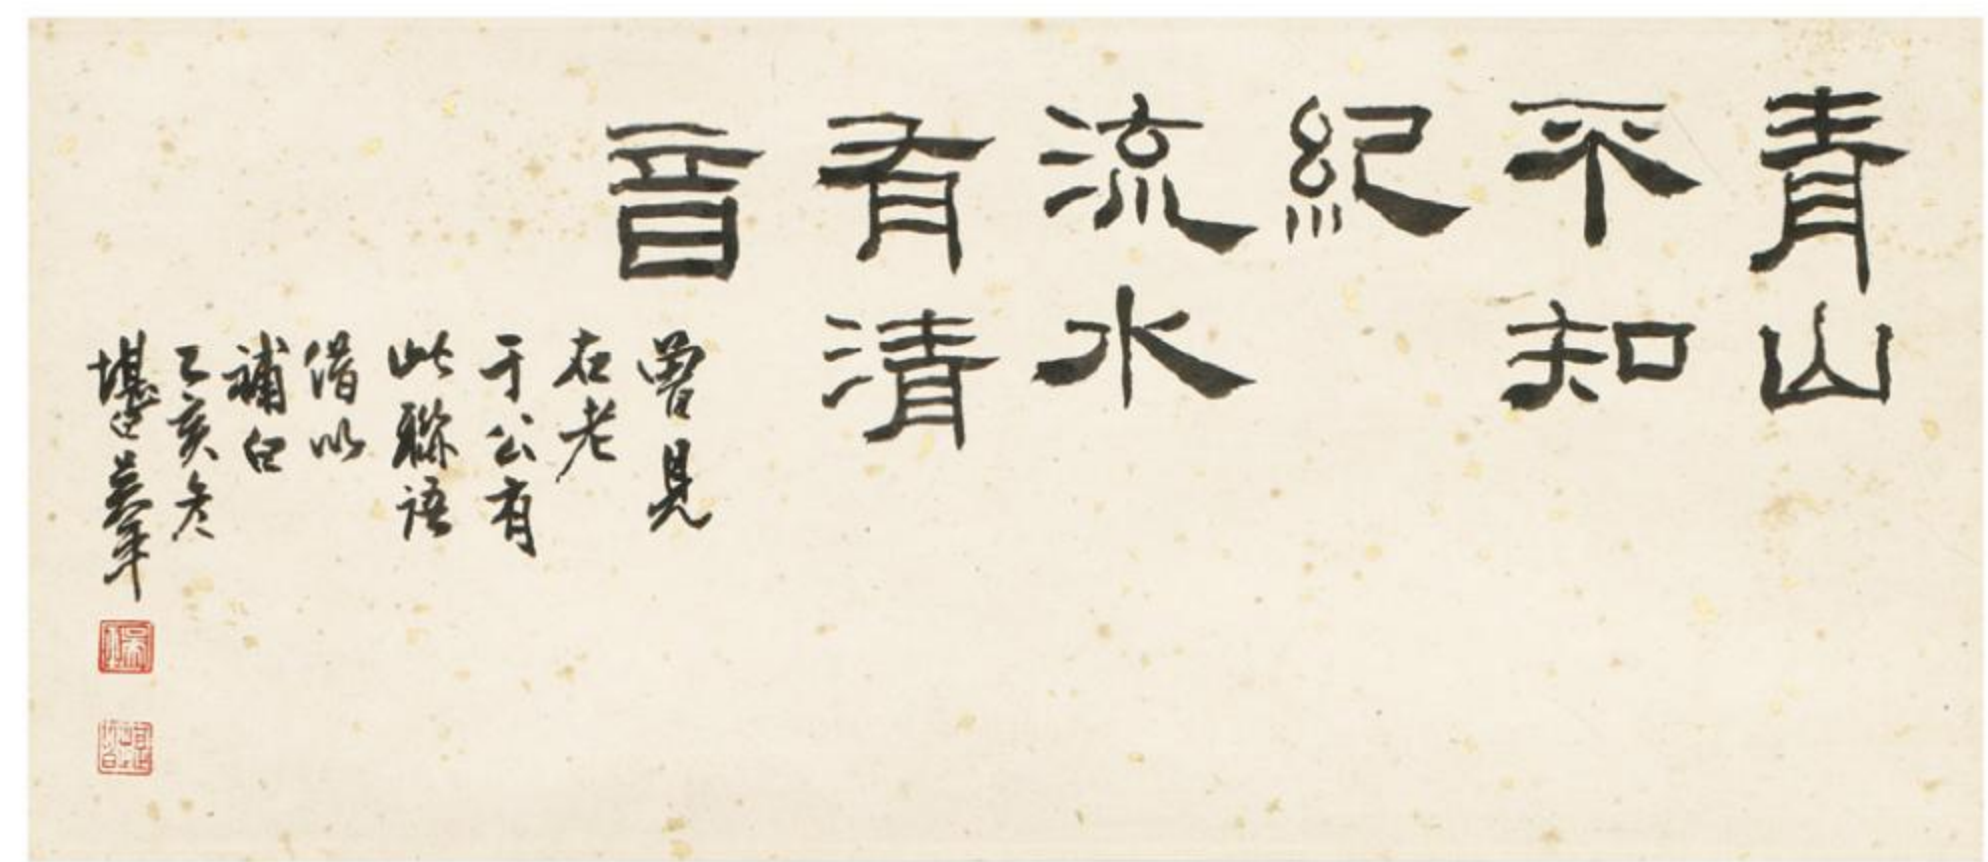 青山
不知
紀
流水
有清
音
曾見
右老
于公有
此聯語
借以
補白
乙亥冬
堪白吳平